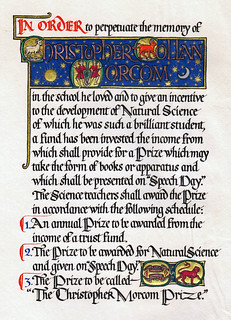 IN ORDER to perpetuate the memory of
CHRISTOPHER COLLAN
MORCOM
in the school he loved and to give an incentive
to the development of Natural Science
of which he was such a brilliant student,
a fund has been invested the income from
which shall provide for a Prize which may
take the form of books or apparatus and
which shall be presented on "Speech Day."
The Science teachers shall award the Prize
in accordance with the following schedule:
1. An annual Prize to be awarded from the
income of a trust fund.
2. The Prize to be awarded for Natural Science
and given on "Speech Day."
3. The Prize to be called—
"The Christopher Morcom Prize."